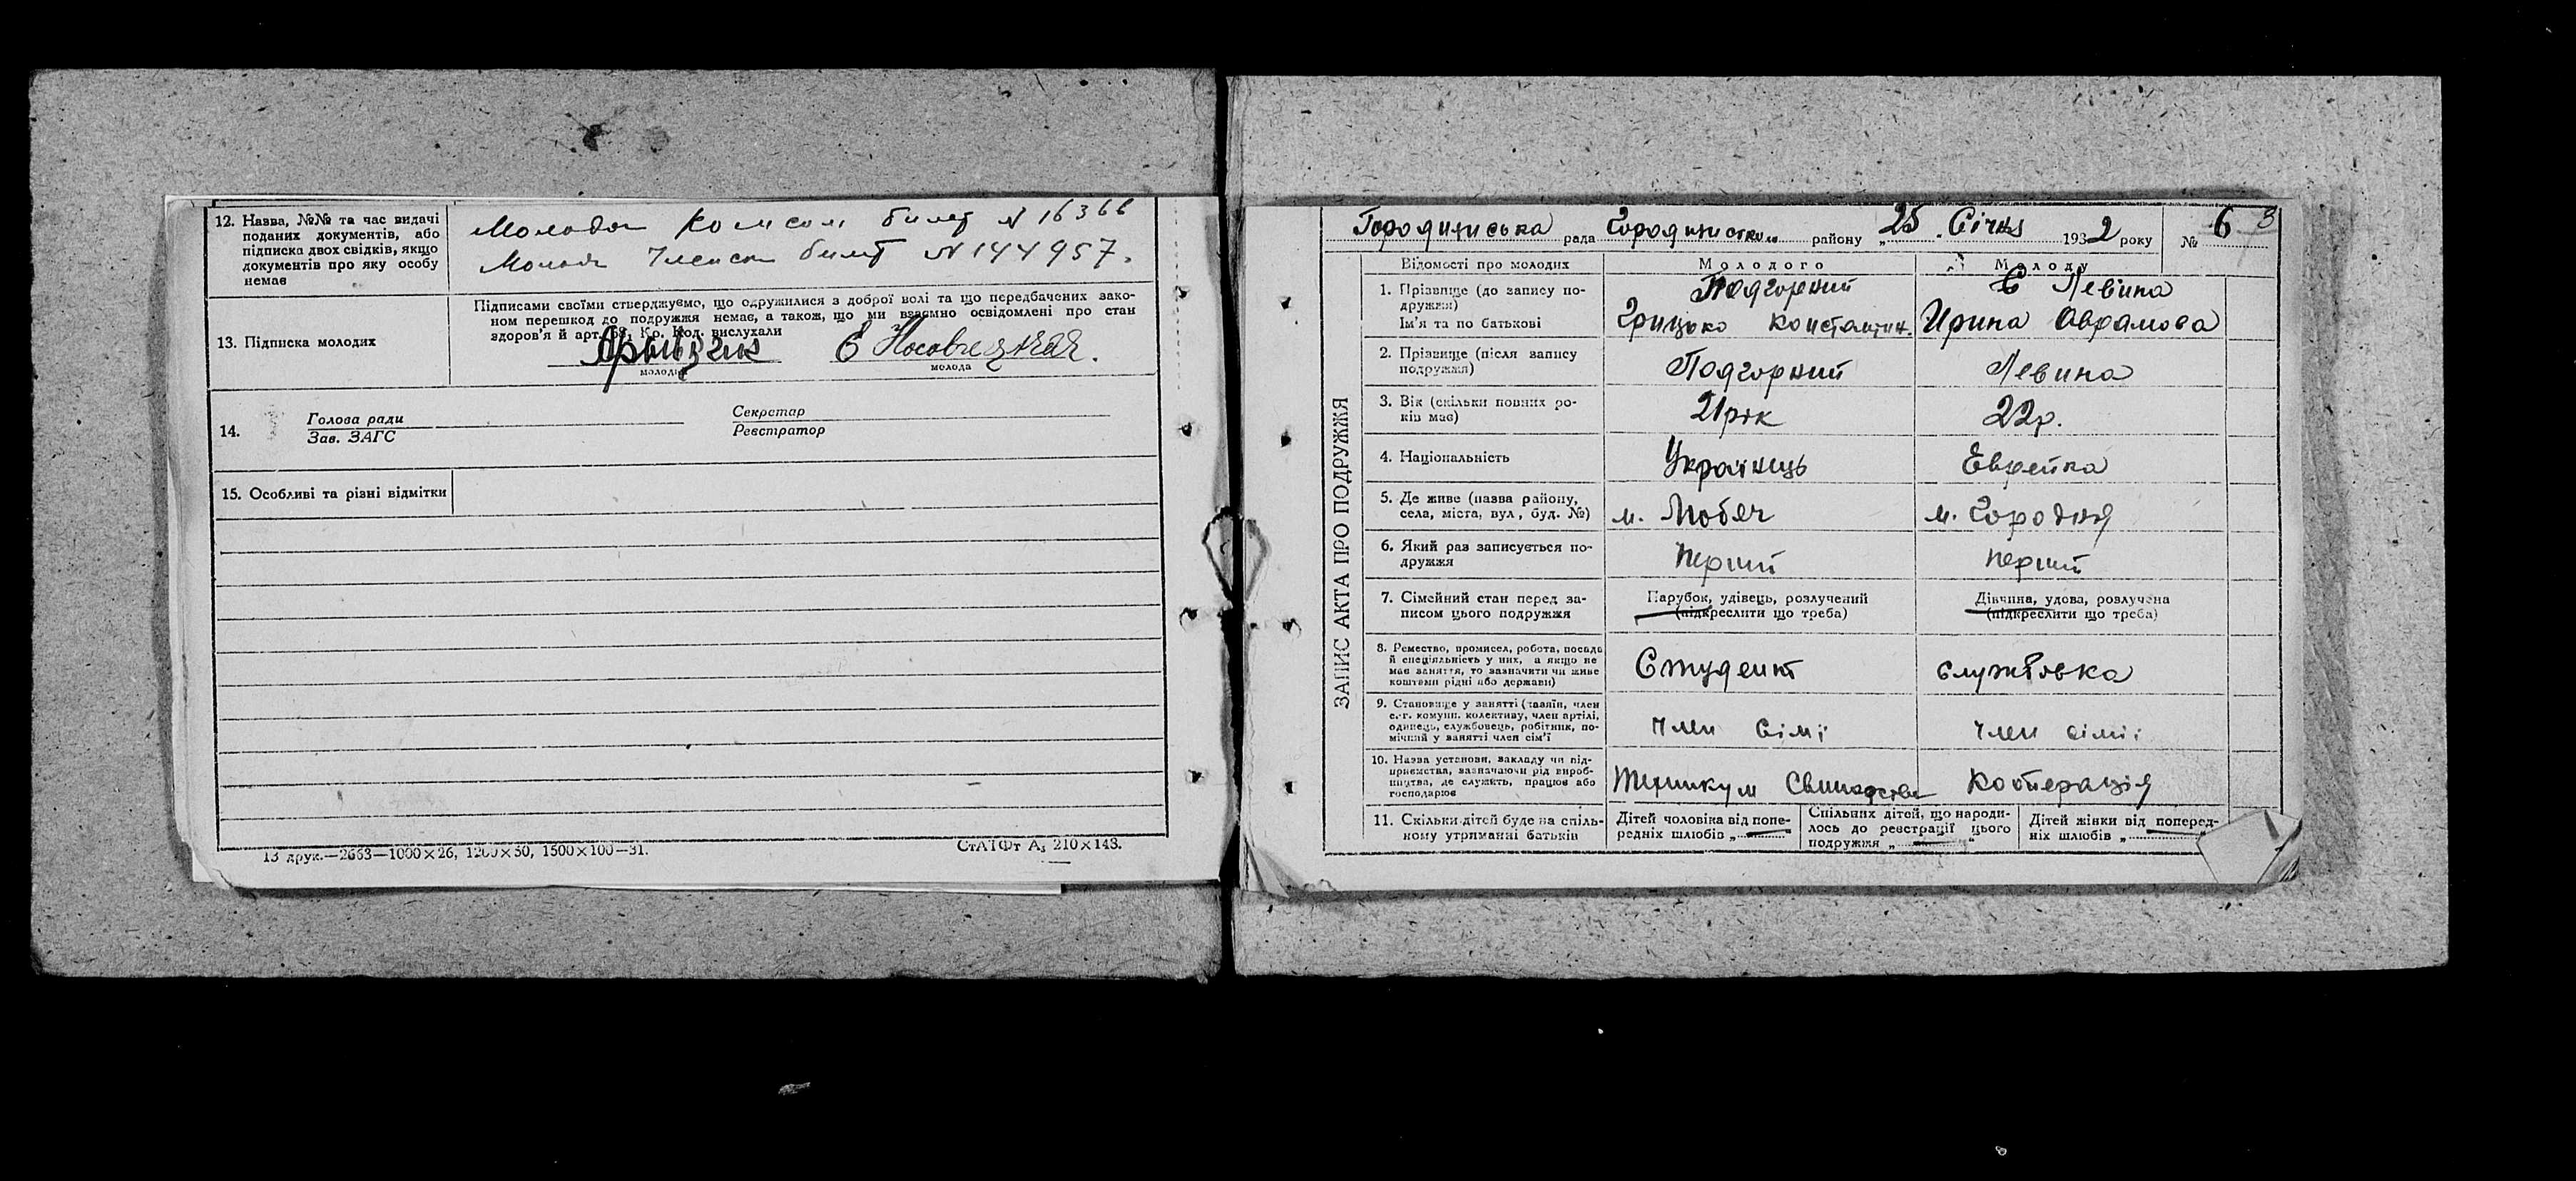 12. Назва, №№ та час видачі
поданих документів, або
підписка двох свідків, якщо
документів про яку особу
немає
Комсом билет N 1636
билет N 144957.
13. Підписка молодих
Підписами своїми стверджуємо, що одружилися з доброї волі та що передбачених зако-
ном перешкод до подружжя немає, а також, що ми взаємно освідомлені про стан
здоров'я й арт. Кр. Код. вислухали
молодий
молода
14.
Голова ради
Зав. ЗАГС
Секретар
Реєстратор
15. Особливі та різні відмітки
13 друк.—2663—1000×26, 1200×50, 1500×100—31.
210×143.
ЗАПИС АКТА ПРО ПОДРУЖЖЯ
рада району „25 Січня 1932 року № 6
3
Відомості про молодих
Молодого
Молоду
1. Прізвище (до запису по-
дружжя)
Ім'я та по батькові
Подгорний
Грицько Константин.
Левина
Ирина Аврамова
2. Прізвище (після запису
подружжя)
Подгорний
Левина
3. Вік (скільки повних ро-
ків має)
21 рік
22 р.
4. Національність
Українець
Еврейка
5. Де живе (назва району,
села, міста, вул, буд. №)
м. Любеч
м. Городня
6. Який раз записується по-
дружжя
перший
перший
7. Сімейний стан перед за-
писом цього подружжя
Парубок, удівець, розлучений
(підкреслити що треба)
Дівчина, удова, розлучена
(підкреслити що треба)
8. Ремество, промисел, робота, посада
й спеціяльність у них, а якщо не
має заняття, то зазначити чи живе
коштами рідні або держави)
Студент
9. Становище у занятті (хазяїн, член
с.-г. комуни, колективу, член артілі,
одинець, службовець, робітник, по-
мічний у занятті член сім'ї
Член сімї
член сімї
10. Назва установи, закладу чи під-
приємства, зазначаючи рід вироб-
ництва, де служить, працює або
господарює
Кооперація
11. Скільки дітей буде на спіль-
ному утриманні батьків
Дітей чоловіка від попе-
редніх шлюбів „
Спільних дітей, що народи-
лось до реєстрації цього
подружжя „
Дітей жінки від поперед-
ніх шлюбів „